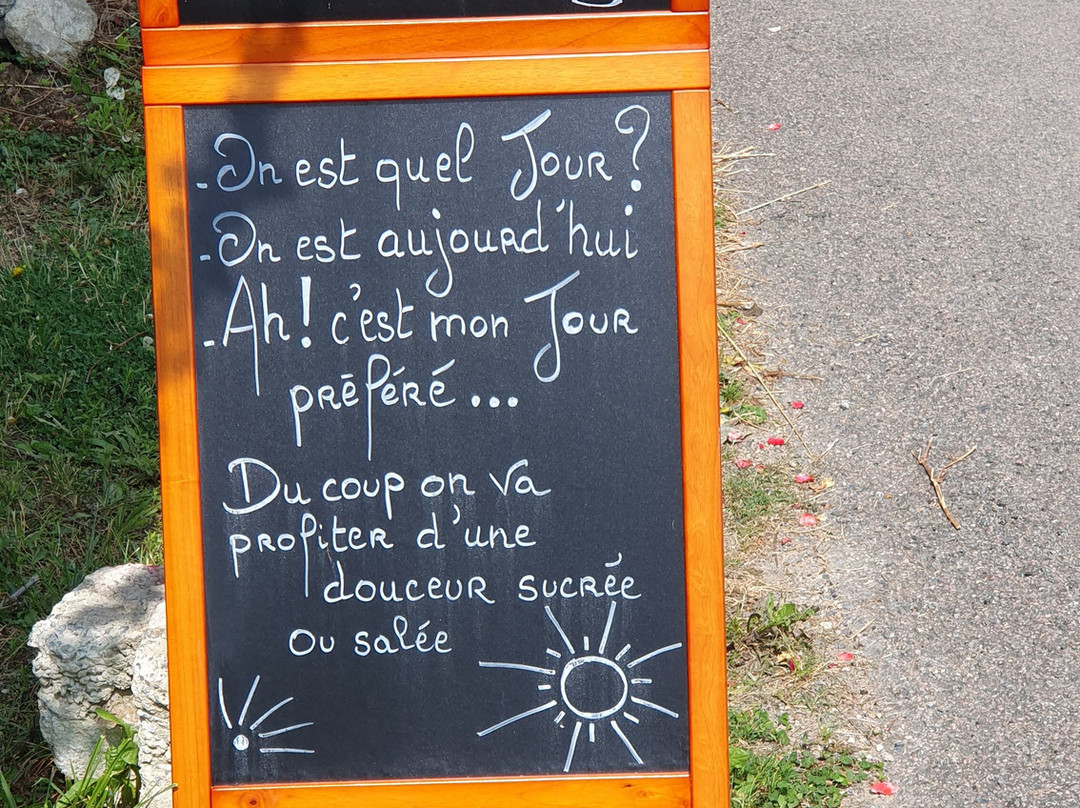 - On est quel Jour ?
- On est aujourd'hui
- Ah ! c'est mon Jour
préféré ...
Du coup on va
profiter d'une
douceur sucrée
ou salée